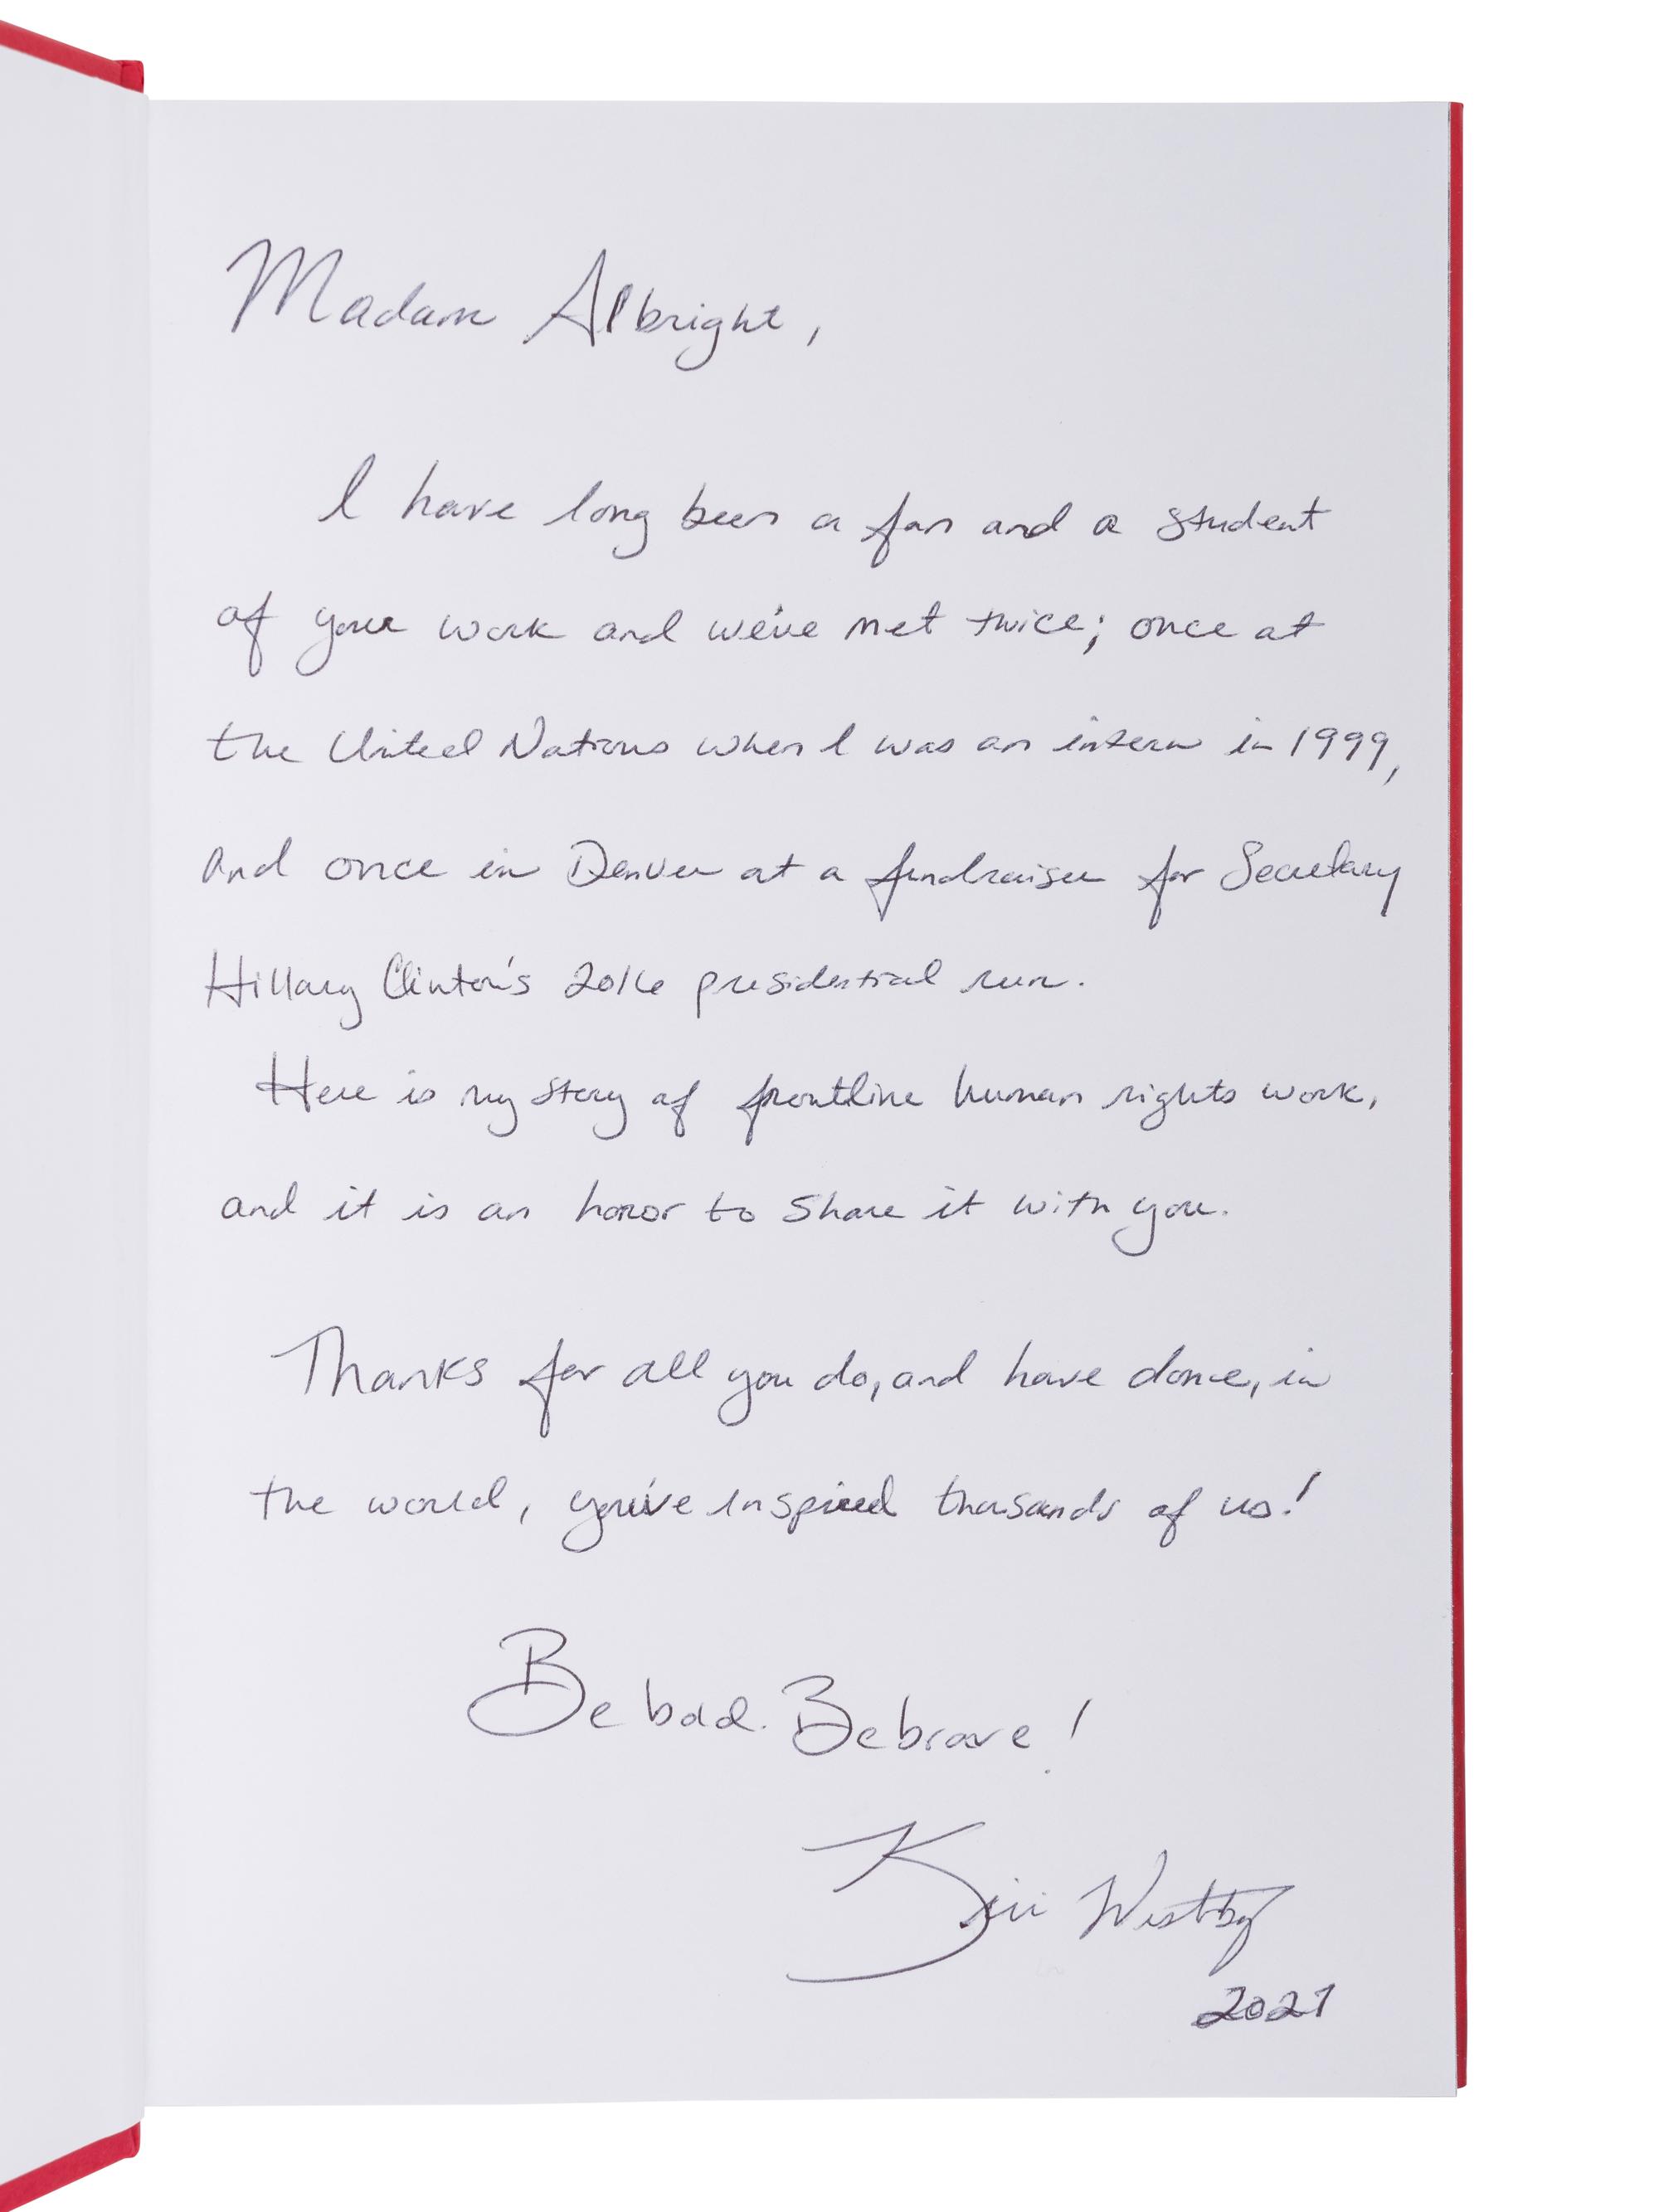 Madam Albright,
I have long been a fan and a student
of your work and we've met twice; once at
the United Nations when I was an intern in 1999,
and once in Denver at a fundraiser for Secretary
Hillary Clinton's 2016 presidential run.
Here is my story of frontline human rights work,
and it is an honor to share it with you.
Thanks for all you do, and have done, in
the world, you've inspired thousands of us!
Be bad. Be brave!
Kiri Westby
2021